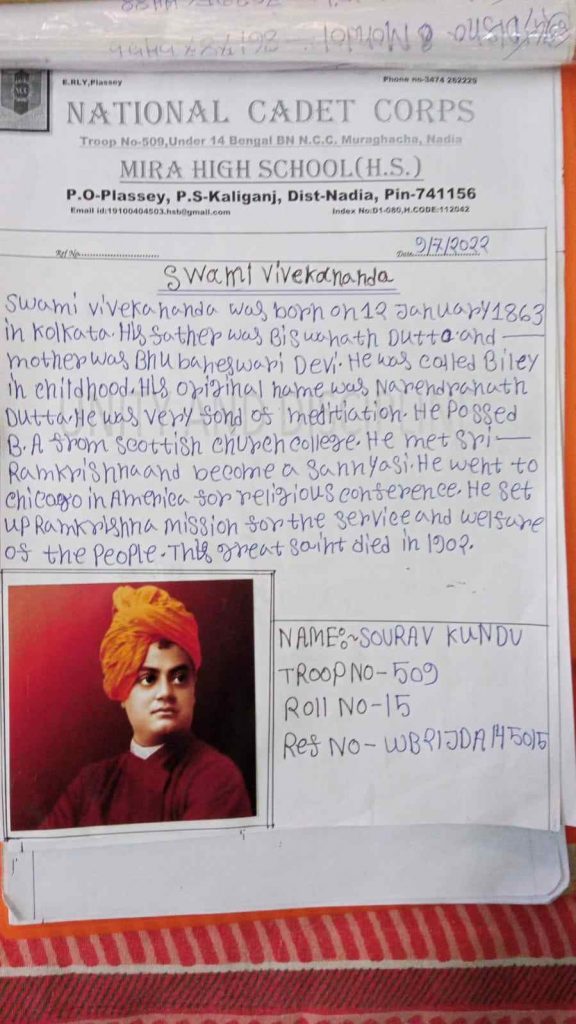 E.RLY,Plassey
Phone no-3474 262225
NATIONAL CADET CORPS
Troop No-509,Under 14 Bengal BN N.C.C. Muraghacha, Nadia
MIRA HIGH SCHOOL(H.S.)
P.O-Plassey, P.S-Kaliganj, Dist-Nadia, Pin-741156
Email id:19100404503.hsb@gmail.com
Index No:D1-080,H.CODE:112042
Ref No.
Date 9/7/2022
Swami Vivekananda
Swami Vivekananda was born on 12 January 1863
in Kolkata. His father was Biswanath Dutta and
mother was Bhubaneswari Devi. He was called Biley
in childhood. His original name was Narendranath
Dutta. He was very fond of meditiation. He Passed
B.A from Scottish church college. He met Sri
Ramkrishna and become a Sannyasi. He went to
Chicago in America for religious conference. He set
up Ramkrishna mission for the service and welfare
of the People. This great saint died in 1902.
NAME:~SOURAV KUNDU
TROOP NO-509
Roll NO-15